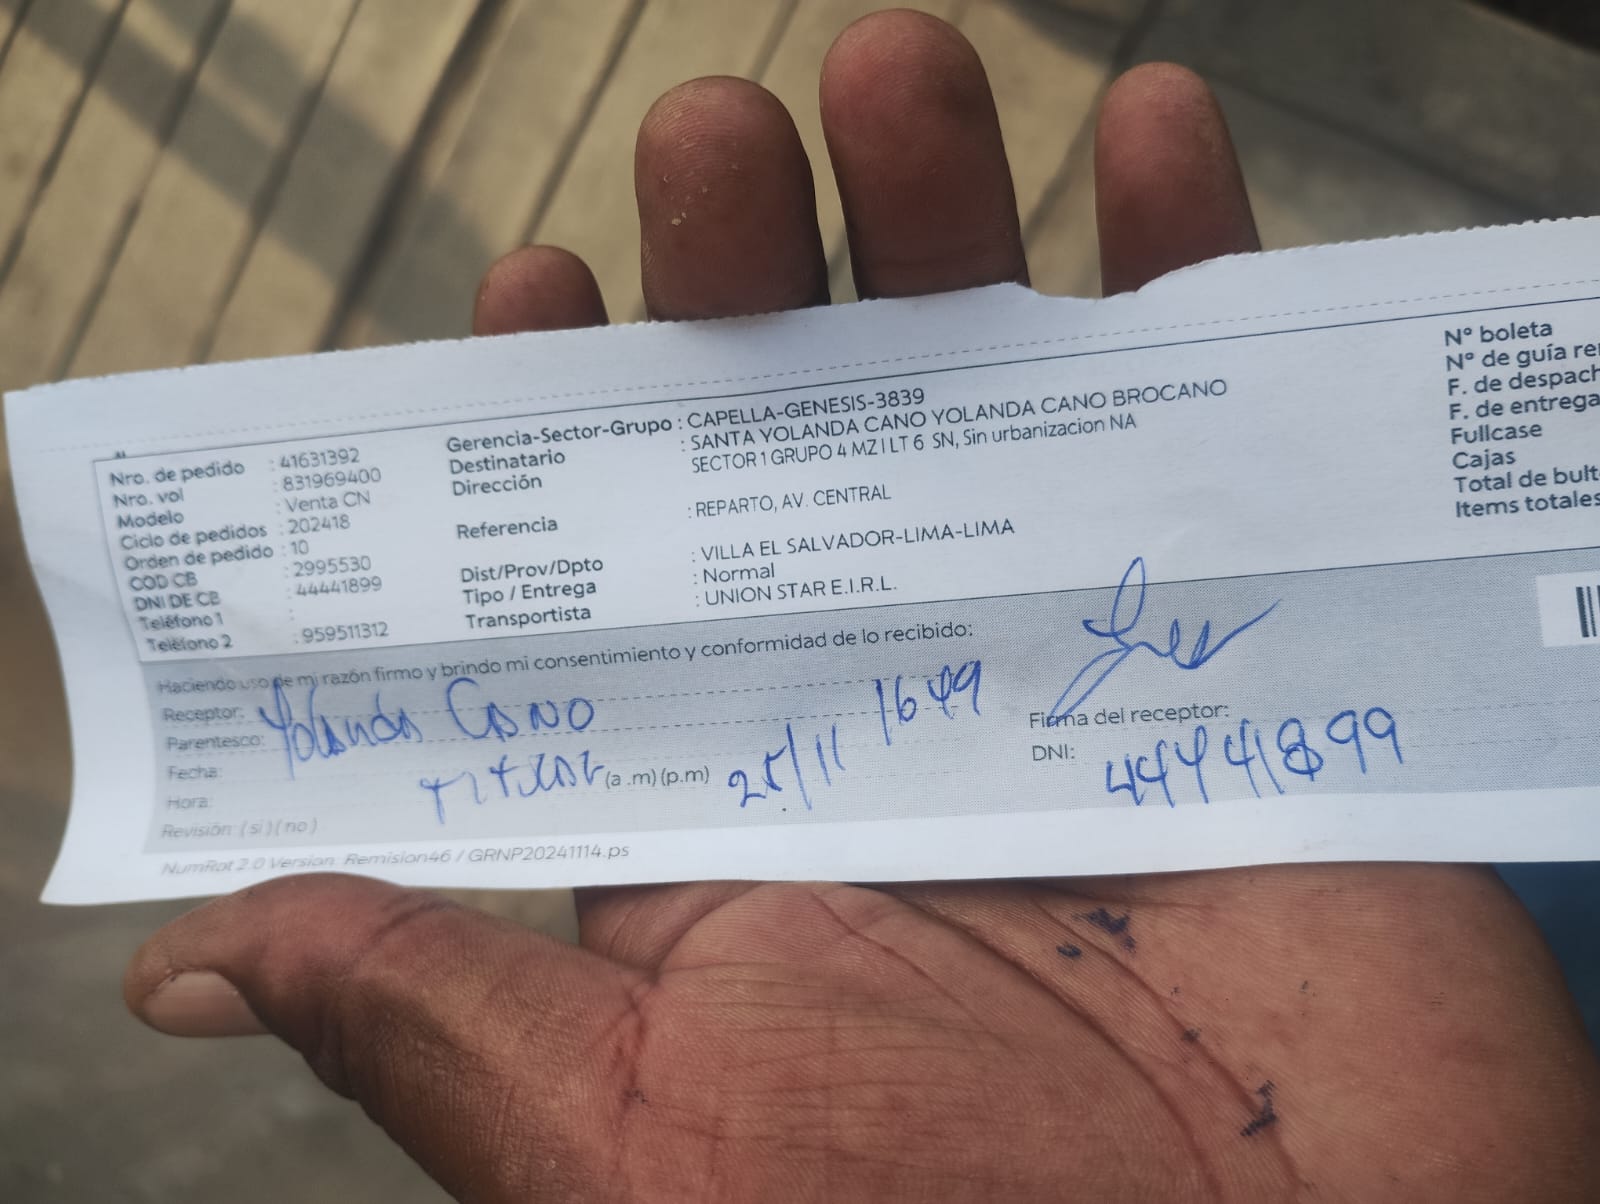 Nro. de pedido : 41631392
Nro. vol : 831969400
Modelo : Venta CN
Ciclo de pedidos : 202418
Orden de pedido : 10
COD CB : 2995530
DNI DE CB : 44441899
Teléfono 1 :
Teléfono 2 : 959511312
Gerencia-Sector-Grupo : CAPELLA-GENESIS-3839
Destinatario : SANTA YOLANDA CANO YOLANDA CANO BROCANO
Dirección SECTOR 1 GRUPO 4 MZ I LT 6 SN, Sin urbanizacion NA
Referencia : REPARTO, AV. CENTRAL
Dist/Prov/Dpto : VILLA EL SALVADOR-LIMA-LIMA
Tipo / Entrega : Normal
Transportista : UNION STAR E.I.R.L.
N° boleta
N° de guía re
F. de despach
F. de entrega
Fullcase
Cajas
Total de bult
Items totales
Haciendo uso de mi razón firmo y brindo mi consentimiento y conformidad de lo recibido:
Receptor: Yolanda Cano
Parentesco:
Fecha: 25/11 1649
Hora: (a .m) (p.m)
Revisión: ( si ) ( no )
Firma del receptor:
DNI: 44441899
NumRot 2.0 Version: Remision46 / GRNP20241114.ps